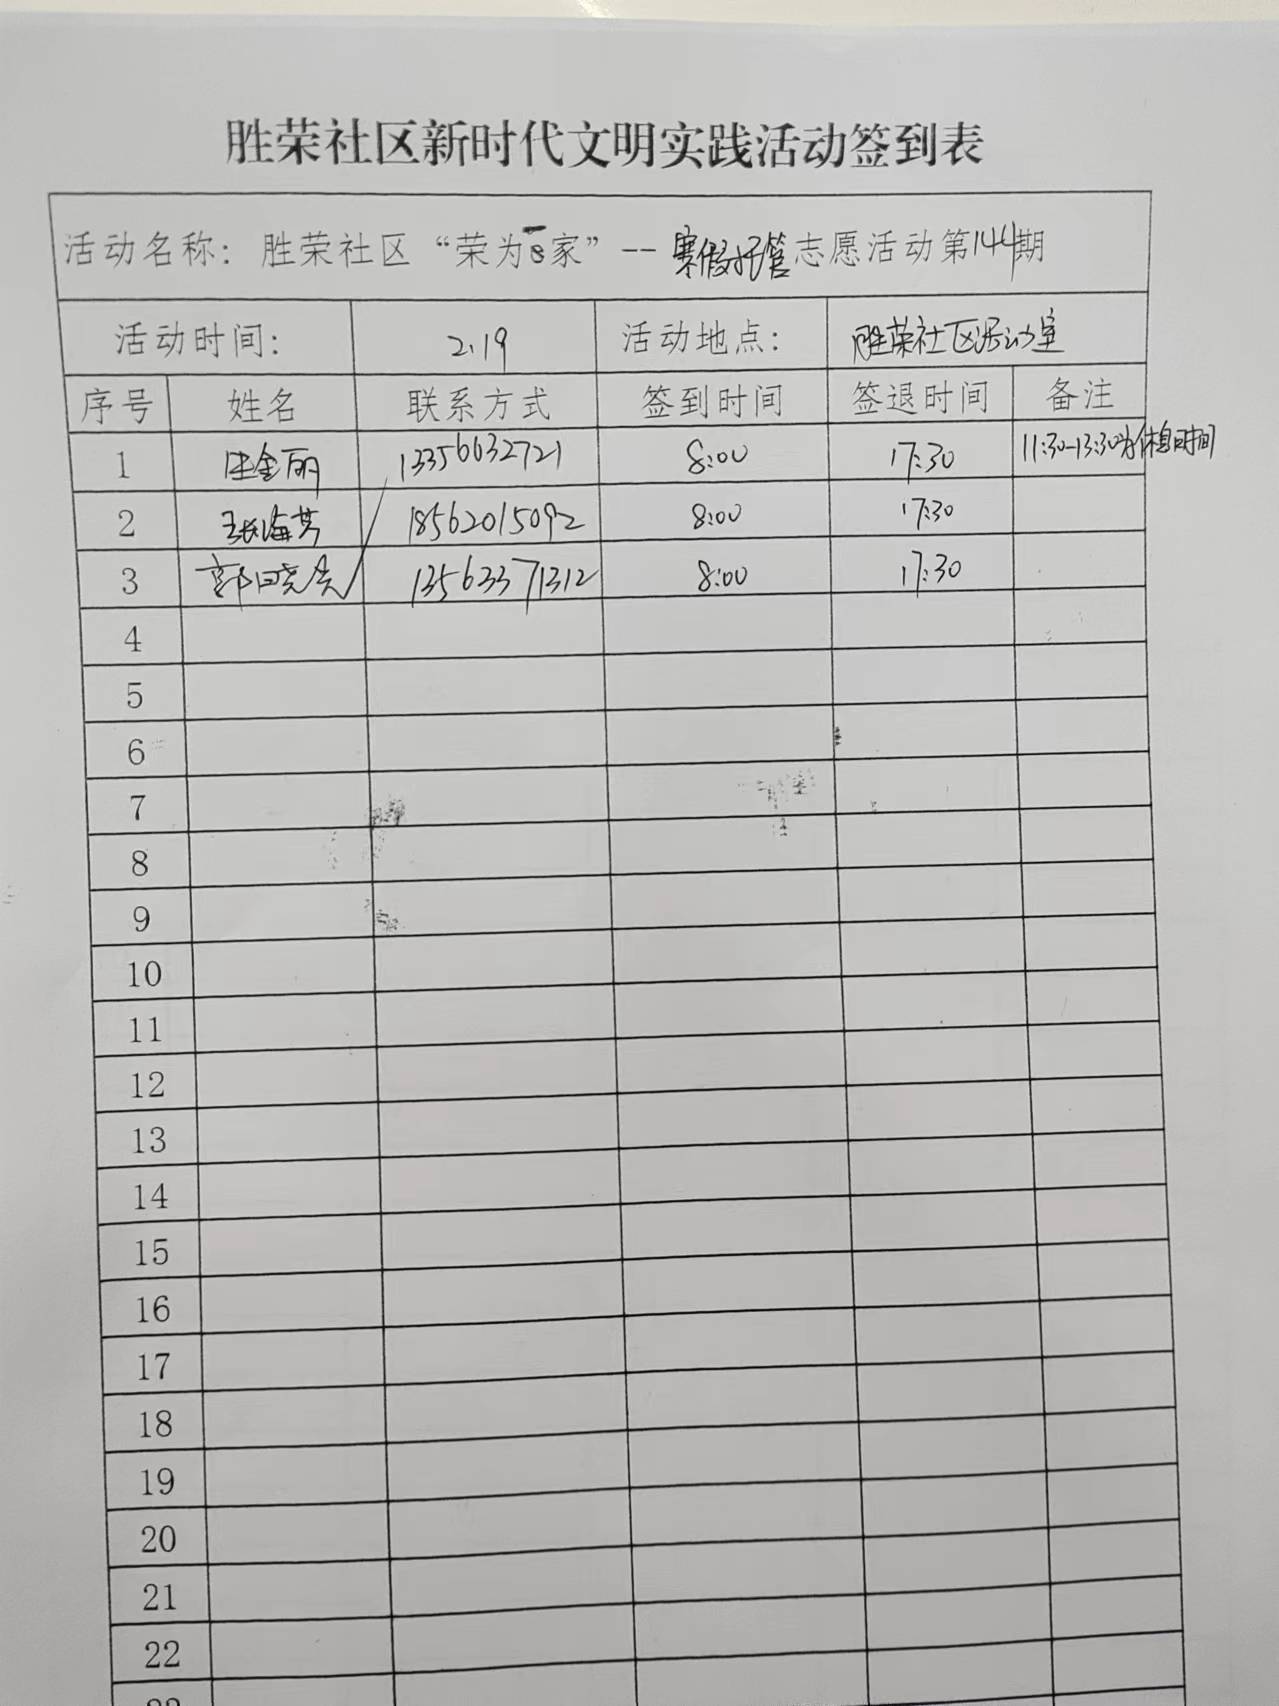 胜荣社区新时代文明实践活动签到表
活动名称：胜荣社区“荣为一家”--寒假托管志愿活动第144期
活动时间： 2.19 活动地点： 胜荣社区活动室
序号 姓名 联系方式 签到时间 签退时间 备注
1 金丽 13356632721 8:00 17:30 11:30-13:30为休息时间
2 张海芳 18562015092 8:00 17:30
3 郭晓 13563371312 8:00 17:30
4
5
6
7
8
9
10
11
12
13
14
15
16
17
18
19
20
21
22